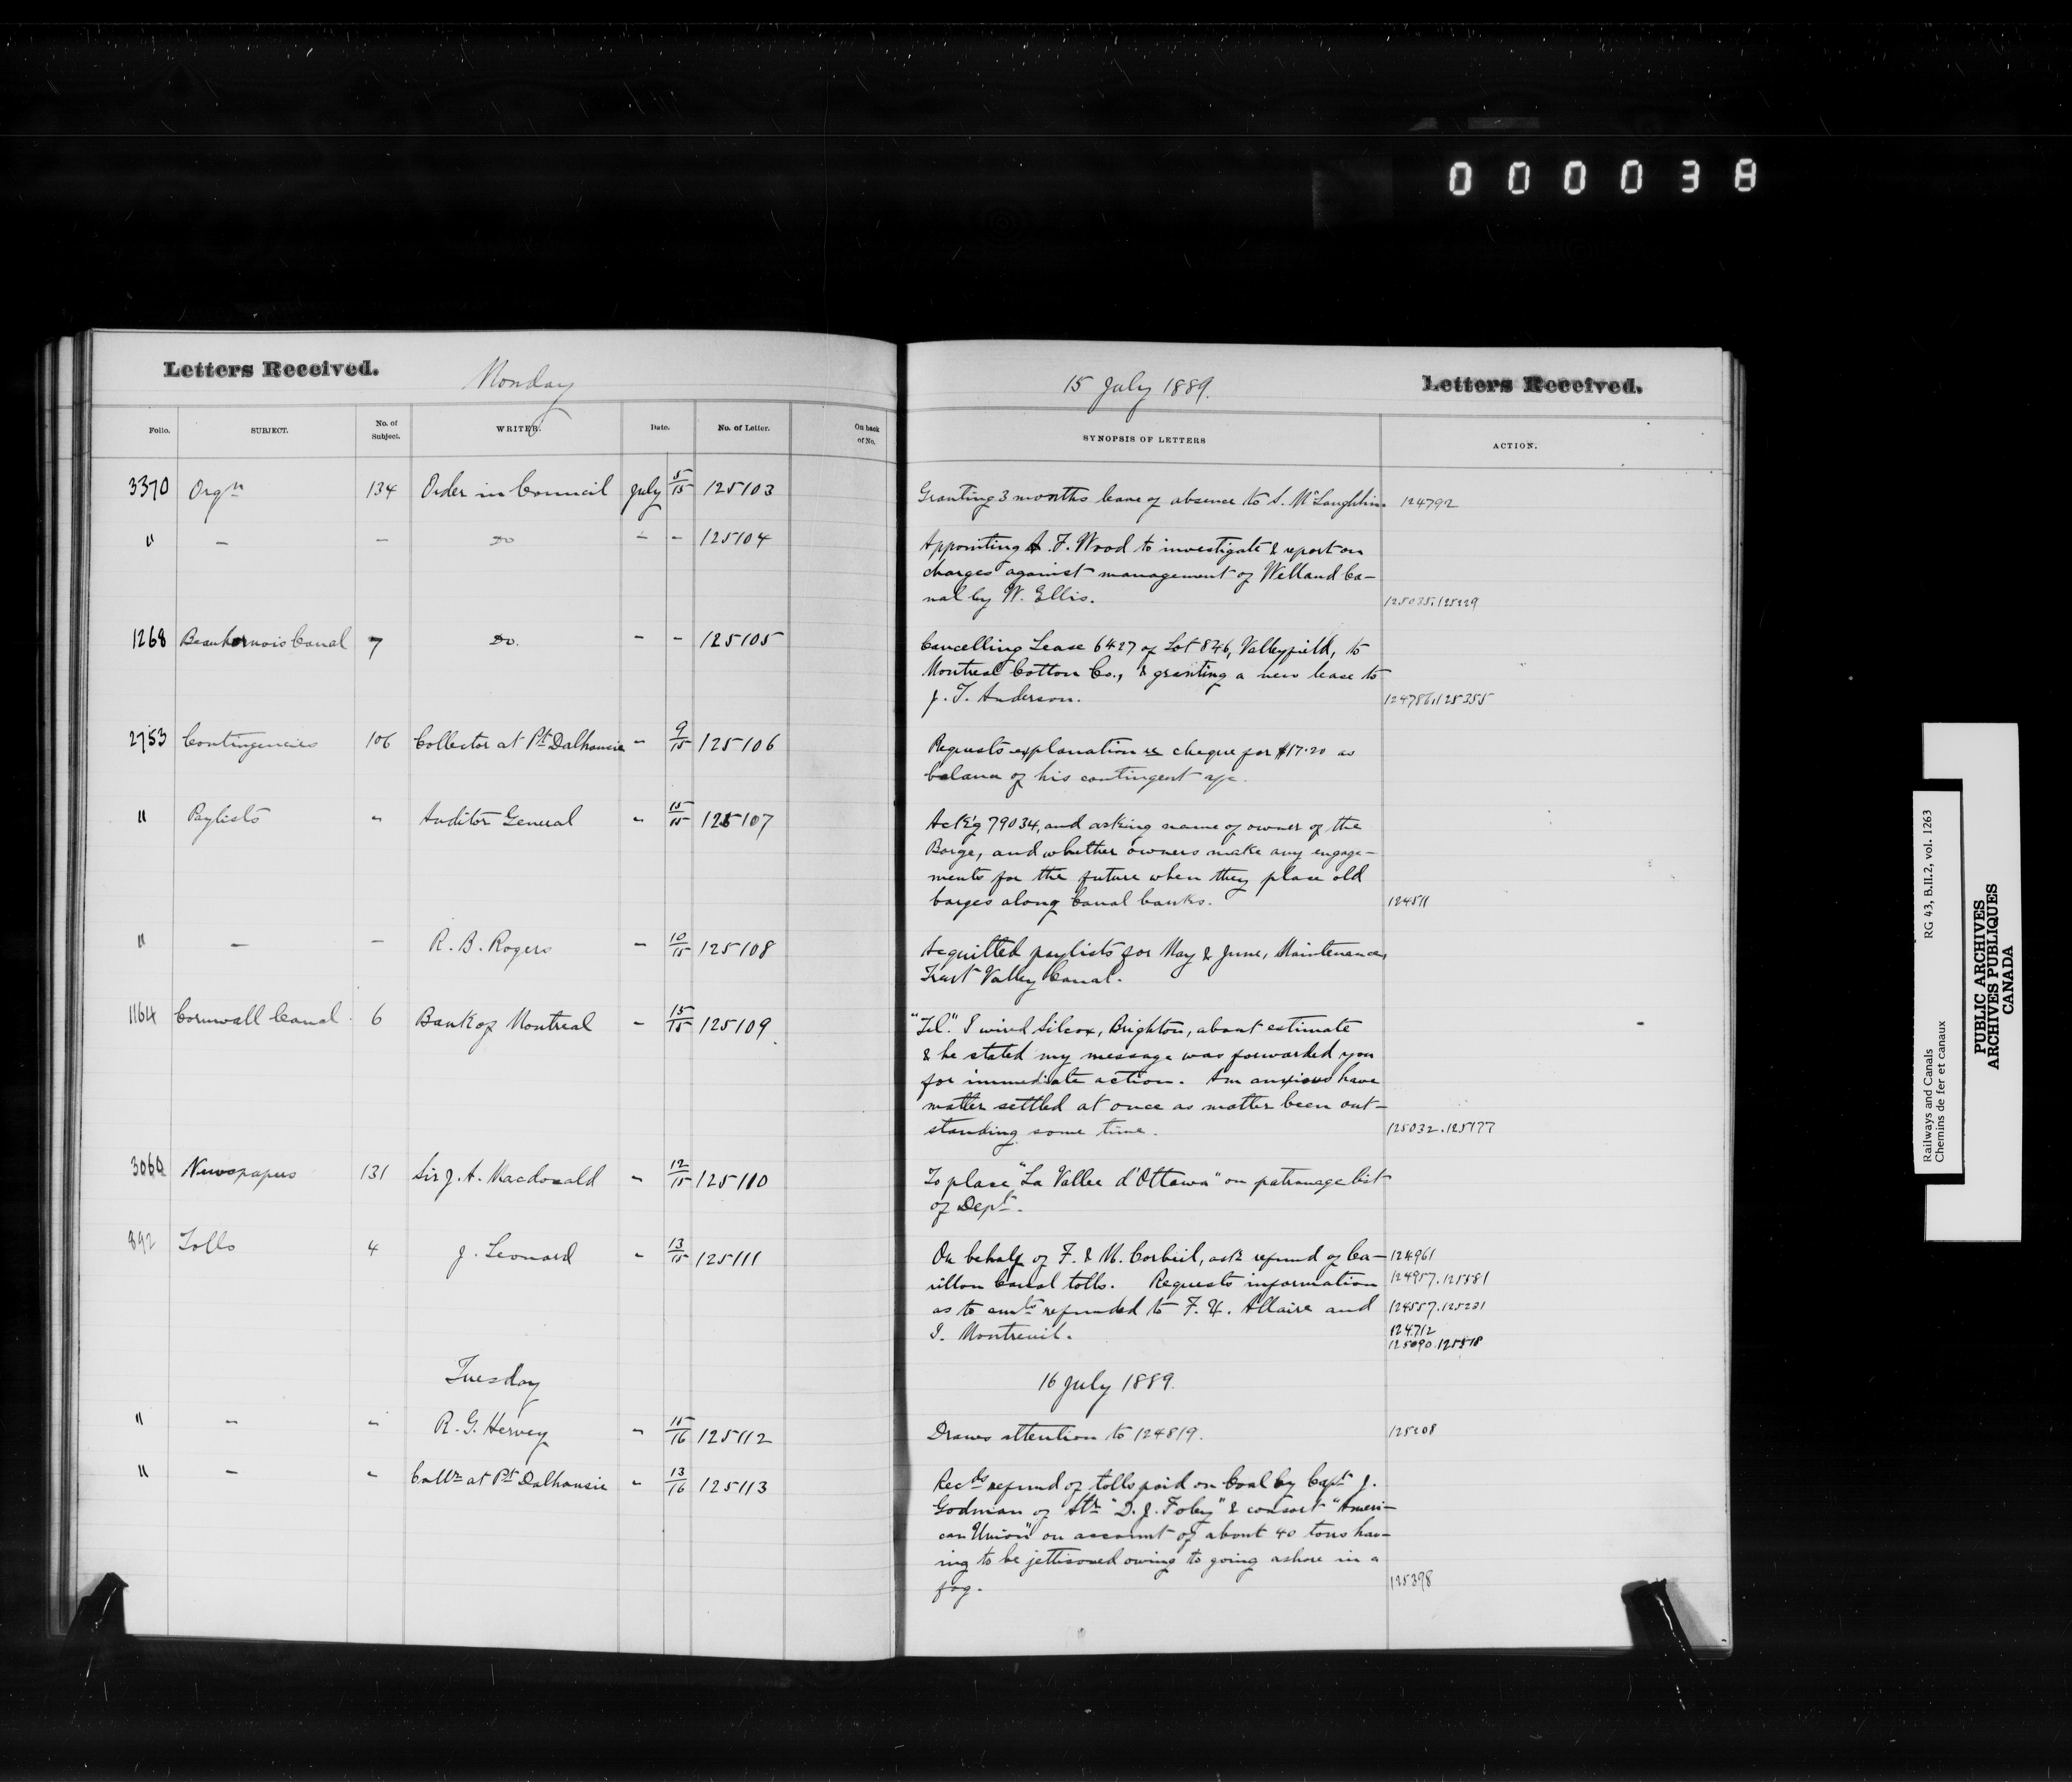 0 0 0 0 3 8
Letters Received. Monday
15 July 1889. Letters Received.
Folio. SUBJECT. No. of Subject. WRITER. Date. No. of Letter. On back of No. SYNOPSIS OF LETTERS ACTION.
3370 Orgn 134 Order in Council July 5/15 125103 Granting 3 months leave of absence to S. McLaughlin 124792
" – – Do – – 125104 Appointing A. F. Wood to investigate & report on
charges against management of Welland Ca-
nal by W. Ellis. 125035.125229
1268 Beauharnois Canal 7 Do. – – 125105 Cancelling Lease 6427 of Lot 846, Valleyfield, to
Montreal Cotton Co., & granting a new lease to
J. T. Anderson. 124786.125355
2753 Contingencies 106 Collector at Pt Dalhousie – 9/15 125106 Requests explanation re cheque for $17.20 as
balance of his contingent a/c.
" Paylists " Auditor General " 15/15 125107 Ack'g 79034, and asking name of owner of the
Barge, and whether owners make any engage-
ments for the future when they place old
barges along Canal banks. 124511
" – – R. B. Rogers – 10/15 125108 Acquitted paylists for May & June, Maintenance,
Trent Valley Canal.
1164 Cornwall Canal. 6 Bank of Montreal – 15/15 125109. "Tel." I wired Silcox, Brighton, about estimate
& he stated my message was forwarded you
for immediate action. Am anxious have
matter settled at once as matter been out-
standing some time. 125032.125177
3060 Newspapers 131 Sir J. A. Macdonald " 12/15 125110 To place "La Vallee d'Ottawa" on patronage list
of Dept.
892 Tolls 4 J. Leonard " 13/15 125111 On behalf of F. & M. Corbeil, asks refund of Ca- 124961
rillon Canal tolls. Requests information 124957.125581
as to amts refunded to F. X. Allaire and 124557.125231
I. Montreuil. 124712
125090.125518
Tuesday 16 July 1889.
" " " R. G. Hervey " 15/16 125112 Draws attention to 124819. 125208
" – " Collr at Pt Dalhousie " 13/16 125113 Recds refund of tolls paid on Coal by Capt J.
Godman of Str "D. J. Foley" & consort "Ameri-
can Union" on account of about 40 tons hav-
ing to be jettisoned owing to going ashore in a
fog. 125398
Railways and Canals RG 43, B.II.2, vol. 1263
Chemins de fer et canaux
PUBLIC ARCHIVES
ARCHIVES PUBLIQUES
CANADA